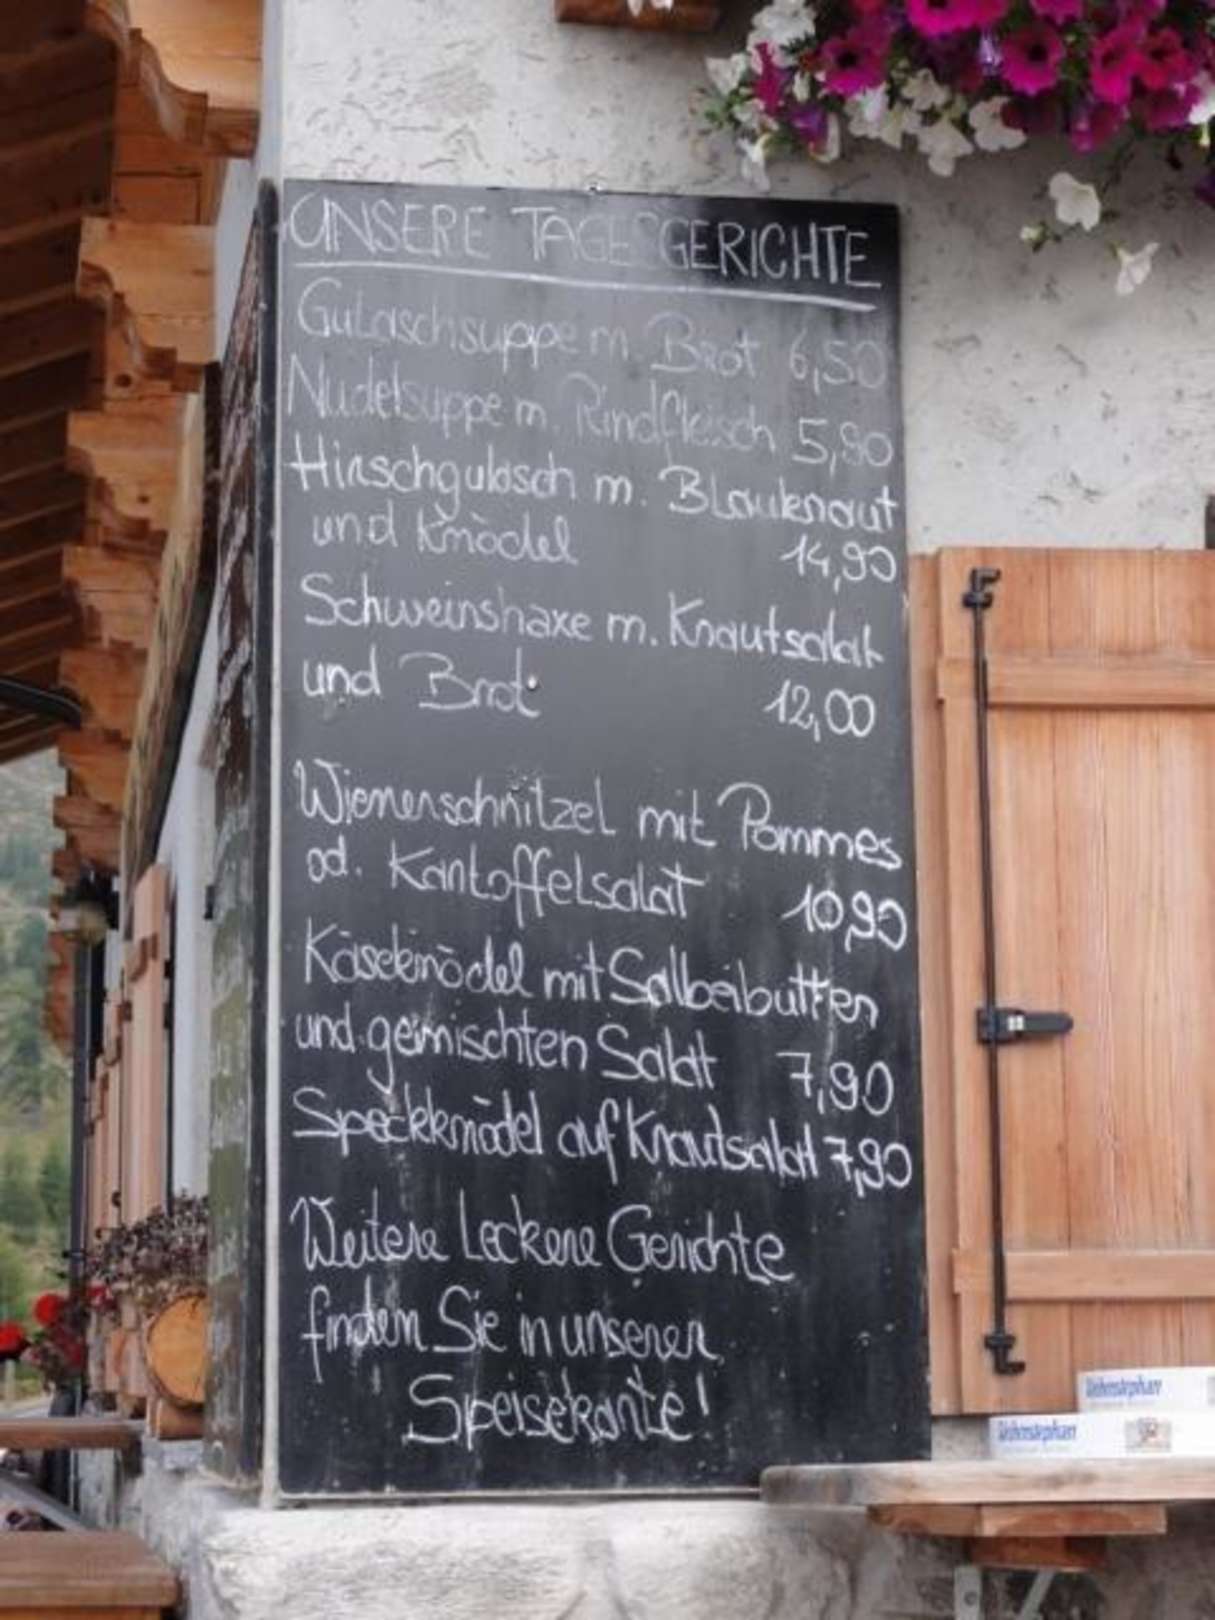 UNSERE TAGESGERICHTE
Gulaschsuppe m. Brot 6,50
Nudelsuppe m. Rindfleisch 5,90
Hirschgulasch m. Blaukraut
und Knödel 14,90
Schweinshaxe m. Krautsalat
und Brot 12,00
Wienerschnitzel mit Pommes
od. Kartoffelsalat 10,90
Käseknödel mit Salbeibutter
und gemischten Salat 7,90
Speckknödel auf Krautsalat 7,90
Weitere Leckere Gerichte
finden Sie in unserer
Speisekarte!
Weihenstephan
Weihenstephan